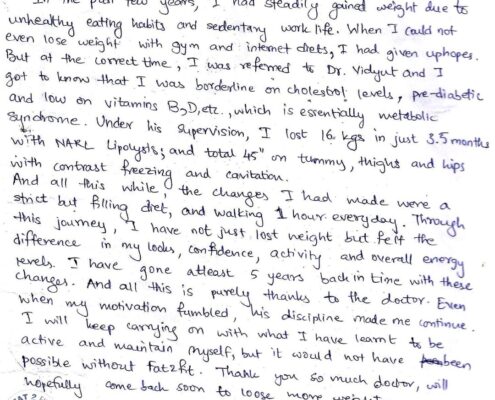 In the past few years, I had steadily gained weight due to
unhealthy eating habits and sedentary work life. When I could not
even lose weight with gym and internet diets, I had given uphopes.
But at the correct time, I was referred to Dr. Vidyut and I
got to know that I was borderline on cholestrol levels, pre-diabetic
and low on vitamins B12,D,etc., which is essentially metabolic
syndrome. Under his supervision, I lost 16 kgs in just 3.5 months
with NARL Lipolysis; and total 45" on tummy, thighs and hips
with contrast freezing and cavitation.
And all this while, the changes I had made were a
strict but filling diet, and walking 1 hour everyday. Through
this journey, I have not just lost weight but felt the
difference in my looks, confidence, activity and overall energy
levels. I have gone atleast 5 years back in time with these
changes. And all this is purely thanks to the doctor. Even
when my motivation fumbled, his discipline made me continue.
I will keep carrying on with what I have learnt to be
active and maintain myself, but it would not have been
possible without fat2fit. Thank you so much doctor, will
hopefully come back soon to loose more weight